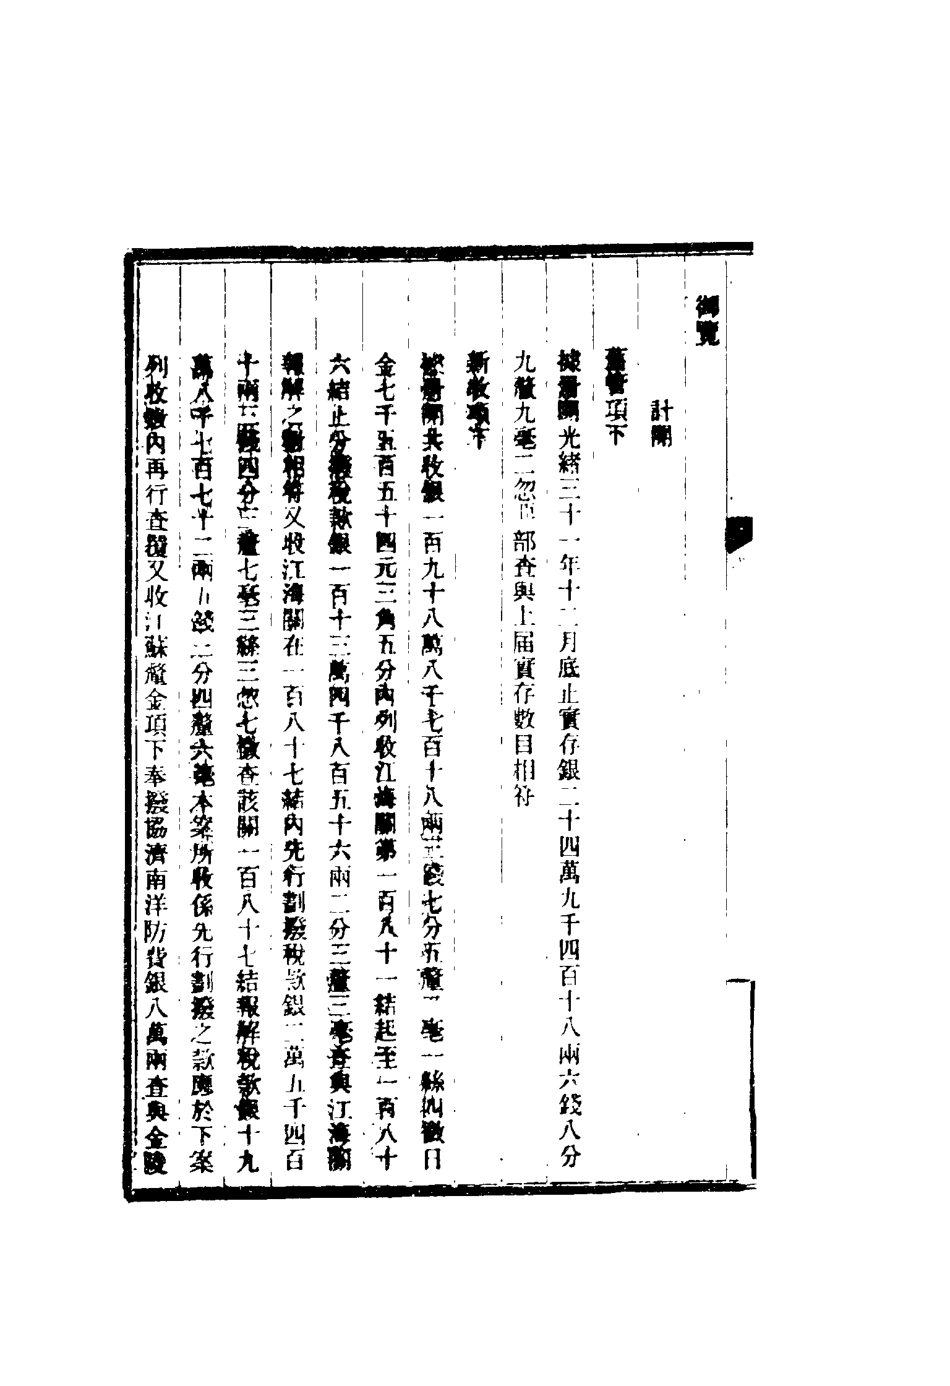 御覽
計開
舊管項下
據册開光緒三十一年十二月底止實存銀二十四萬九千四百十八兩六錢八分
九釐九毫二忽臣部查與上屆實存數目相符
新收項下
據册開共收銀一百九十八萬八千七百十八兩三錢七分五釐一毫一絲四微日
金七千五百五十四元三角五分內列收江海關第一百八十一結起至一百八十
六結止分撥稅款銀一百十三萬四千八百五十六兩二分三釐三毫查與江海關
報解之數相符又收江海關在一百八十七結內先行劃撥稅款銀二萬五千四百
十兩三錢四分三釐七毫三絲三忽七微查該關一百八十七結報解稅款銀十九
萬八千七百七十二兩五錢二分四釐六毫本案所收係先行劃撥之款應於下案
列收數內再行查覈又收江蘇釐金項下奉撥協濟南洋防費銀八萬兩查與金陵